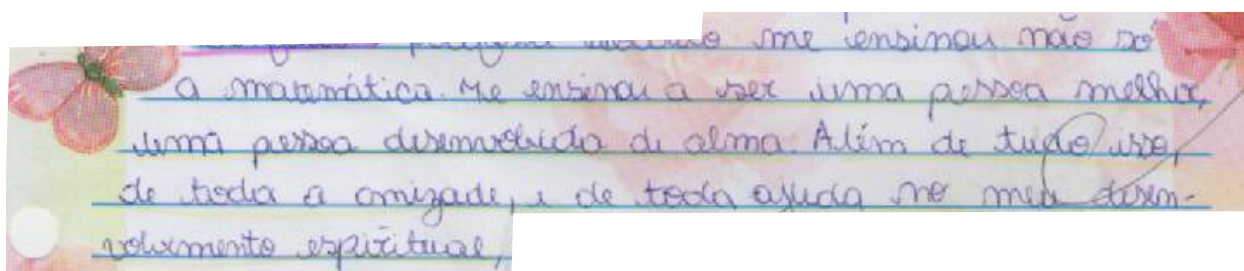 me ensinou não só
a matemática. Me ensinou a ser uma pessoa melhor,
uma pessoa desenvolvida de alma. Além de tudo isso,
de toda a amizade, e de toda ajuda no meu desen-
volvimento espiritual,